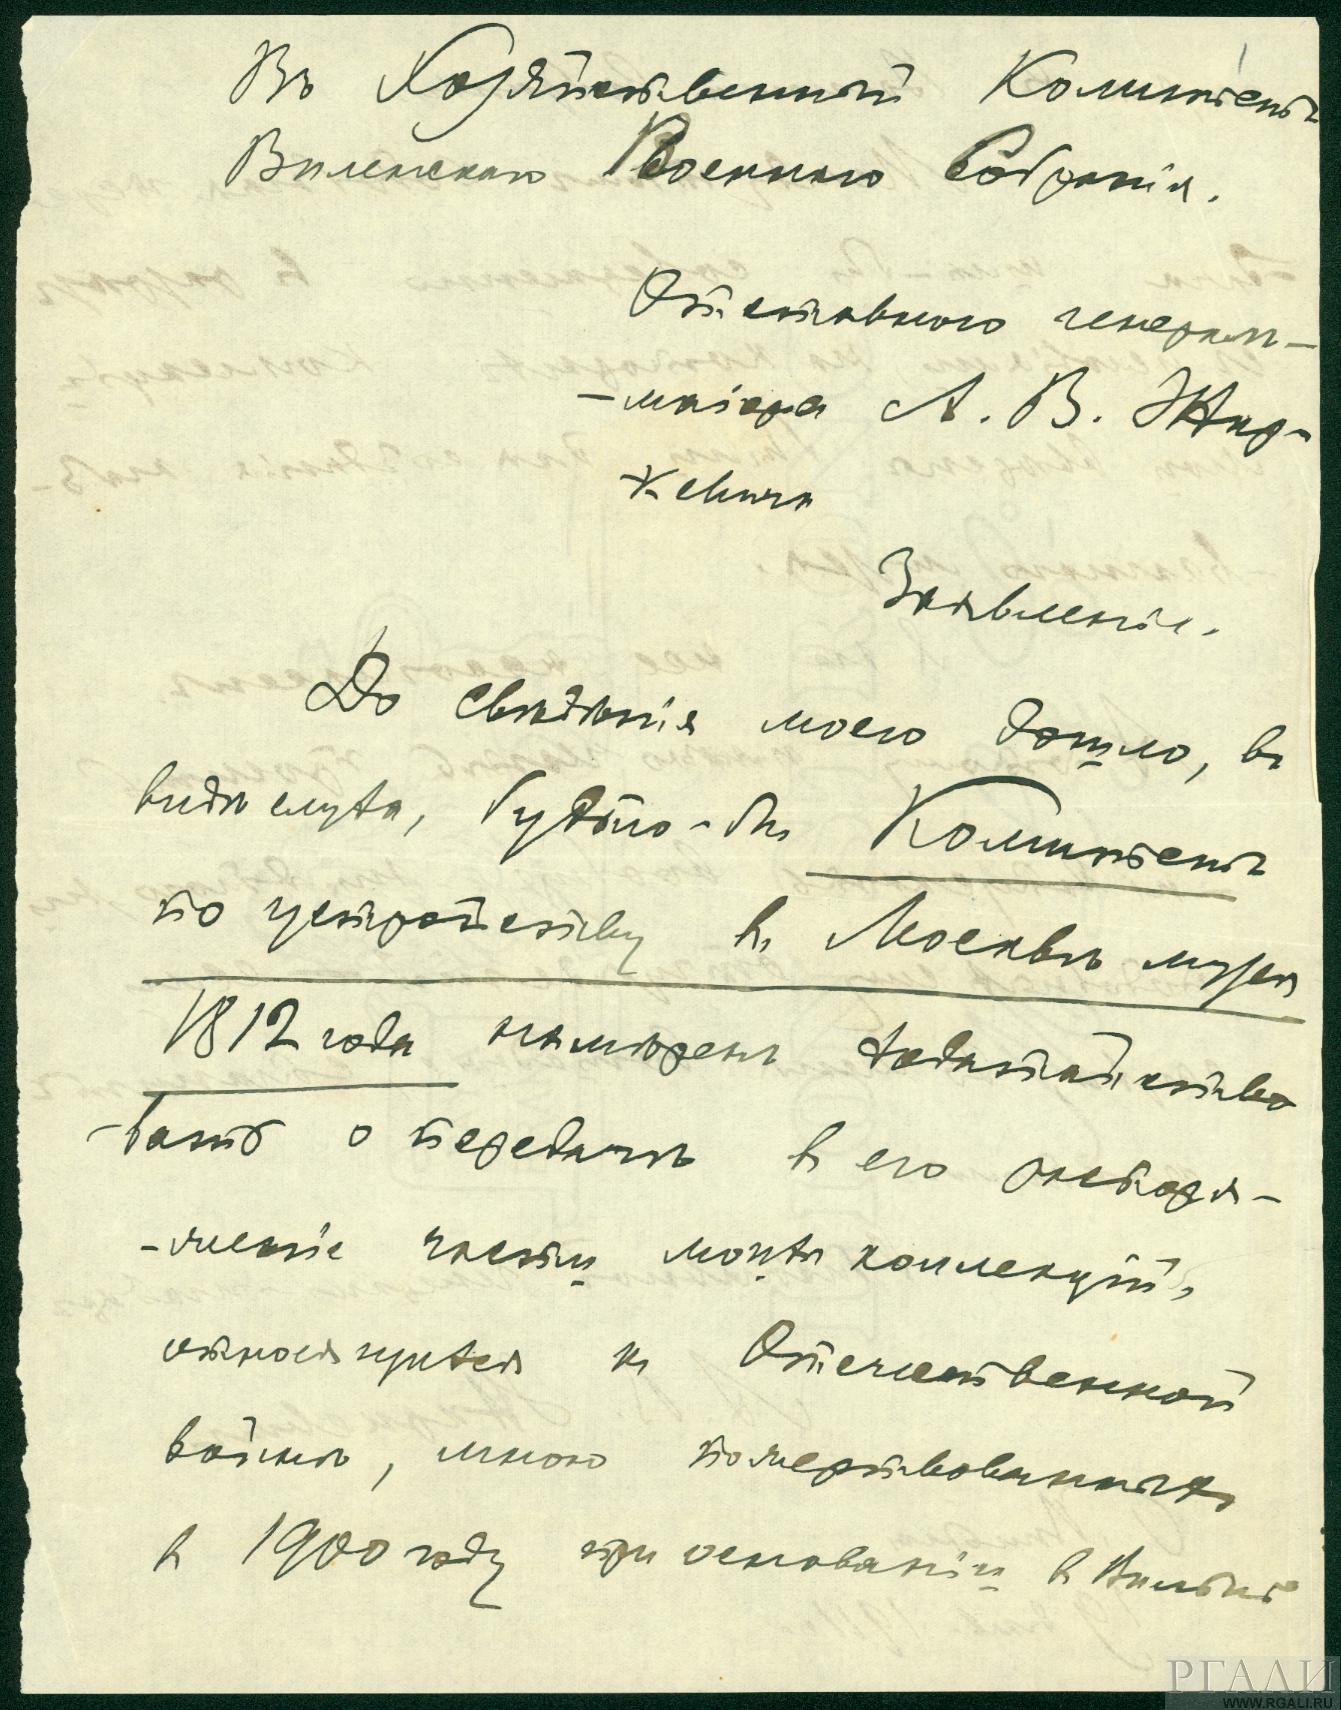 Въ Хозяйственный Комитетъ
Виленскаго Военнаго Собранія.
Отставного генералъ-
-маіора А. В. Жир-
кевича
Заявленіе.
До свѣдѣнія моего дошло, въ
видѣ слуха, будто-бы Комитетъ
по устройству въ Москвѣ музея
1812 года намѣренъ ходатайство
-вать о передачѣ въ его распоря-
-женіе части моихъ коллекцій,
относящихся къ Отечественной
войнѣ, мною пожертвованныхъ
въ 1900 году при основаніи въ Вильнѣ
РГАЛИ
WWW.RGALI.RU